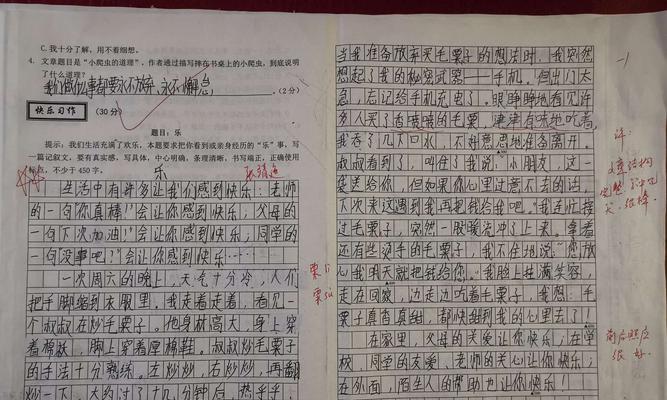 C.我十分了解,用不着细想。
4. 文章题目是“小爬虫的道理”,作者通过描写摔在书桌上的小爬虫,到底说明
了什么道理?
我们做什么事都要永不放弃,永不懈怠。(2分)
快乐习作 (30分)
题目:乐
提示:我们生活充满了欢乐,本题要求把你看到或亲身经历的“乐”事,写
一篇记叙文。要有真实感,写具体,中心明确,条理清晰,书写端正,正确使用
标点,不少于450字。
乐
生活中有许多让我们感到快乐:老师
的一句“你真棒!”会让你感到快乐;父母的
一句“下次加油!”会让你感到快乐;同学的
一句“没事吧!”会让你感到快乐……
一次周六的晚上,天气十分冷,人们
把手脚缩到衣服里。我走着走着,看见一
个叔叔在炒毛栗子。他身材高大,身上穿
着棉袄,脚上穿着厚棉鞋。叔叔炒毛栗子
的手法十分熟练。左炒炒,右炒炒,再翻
炒一下,大约过了十几分钟后,热乎乎
当我准备放弃买毛栗子的想法时,我突然
想起了我的秘密武器——手机。但出门太
急,忘记给手机充电了。眼睁睁地看见许
多人买了香喷喷的毛栗,津津有味地吃着,
我吞了几下口水,不好意思地准备离开。
叔叔看到了,叫住了我说:“小朋友,这一
袋送给你,但如果你心里过意不去的话,
下次来这遇到我再把钱给我吧。”我连忙接
过毛栗子,突然一股暖流冲了上来。拿着
还有些烫手的毛栗子,我不住地说:“你放
心我明天就把钱给你。”我脸上挂满笑容,
走在回家,边走边吃着毛栗子,我想:毛
栗子真香真甜,都快甜到我的心里去了!
在家里,父母的关爱让你快乐;在学
校,同学的友爱、老师的关心让你快乐;
在外面,陌生人的帮助也让你快乐!
评:
文章结构
完整
前后照应
很好。